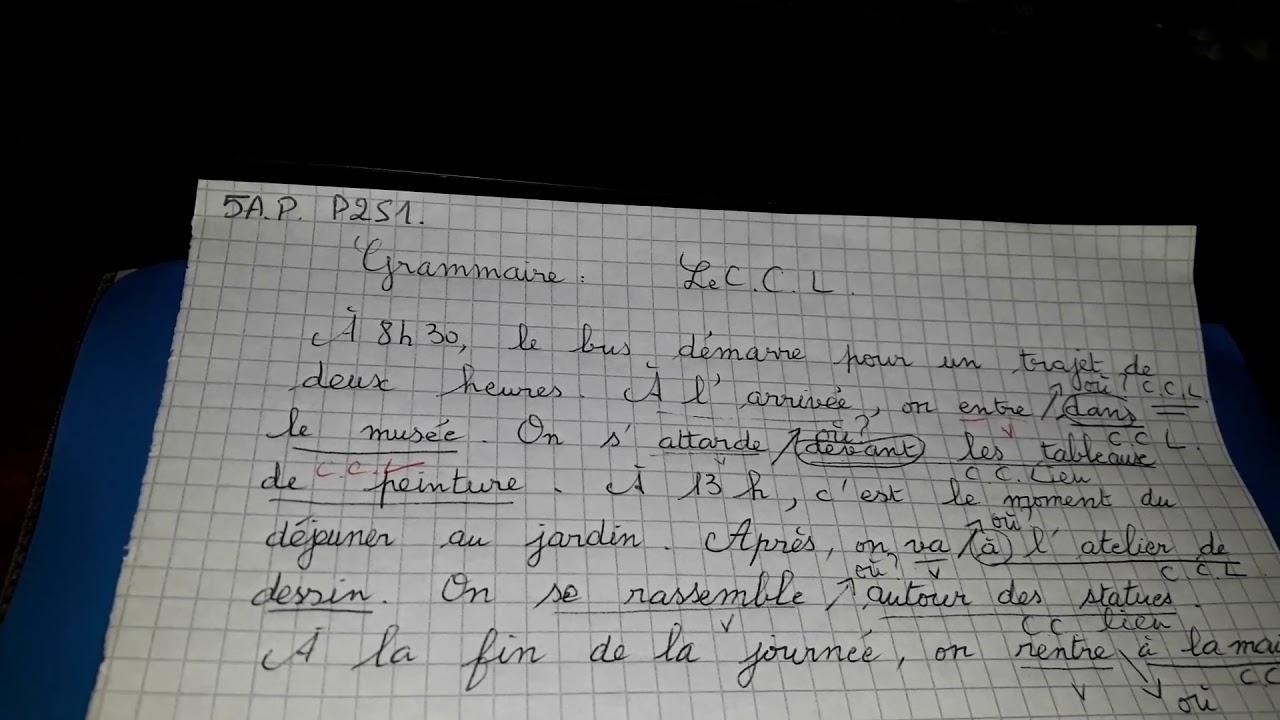 5A.P. P2S1.
Grammaire : Le C.C.L.
À 8h30, le bus démarre pour un trajet de
où ? C.C.L.
deux heures. À l'arrivée, on entre dans
V C C L.
où ?
le musée. On s'attarde devant les tableaux
C.C. V C.C. Lieu
de peinture. À 13h, c'est le moment du
où
déjeuner au jardin. Après, on va à l'atelier de
où ? V C.C.L
dessin. On se rassemble autour des statues.
V CC lieu
À la fin de la journée, on rentre à la mai
V où CC